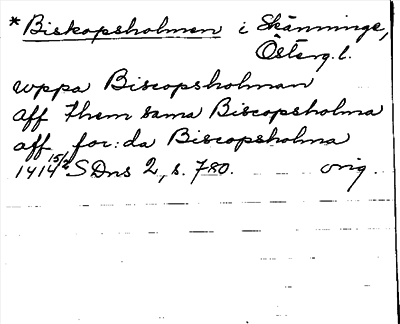 *Biskopsholmen i Skänninge,
Österg.l.
wppa Biscopsholman
aff them sama Biscopsholma
aff for:da Biscopsholma
1414 15/2 SDns 2, s. 780. orig.